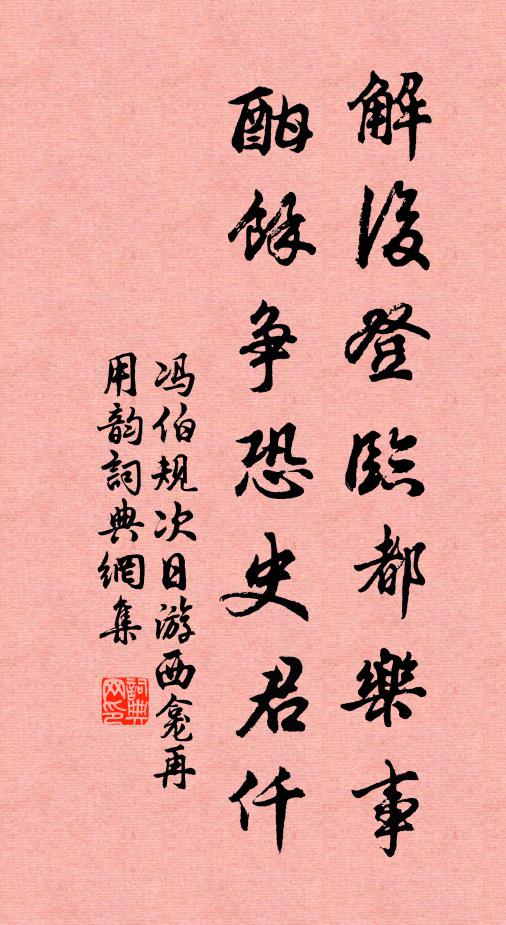 解後登臨都樂事
酣餘争恐史君仟
冯伯规次日游西龛再
用韵詞典網集
詞典網印